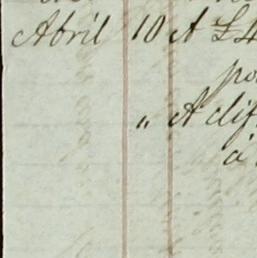 Abril 10 A £4
po
„ A dif
á